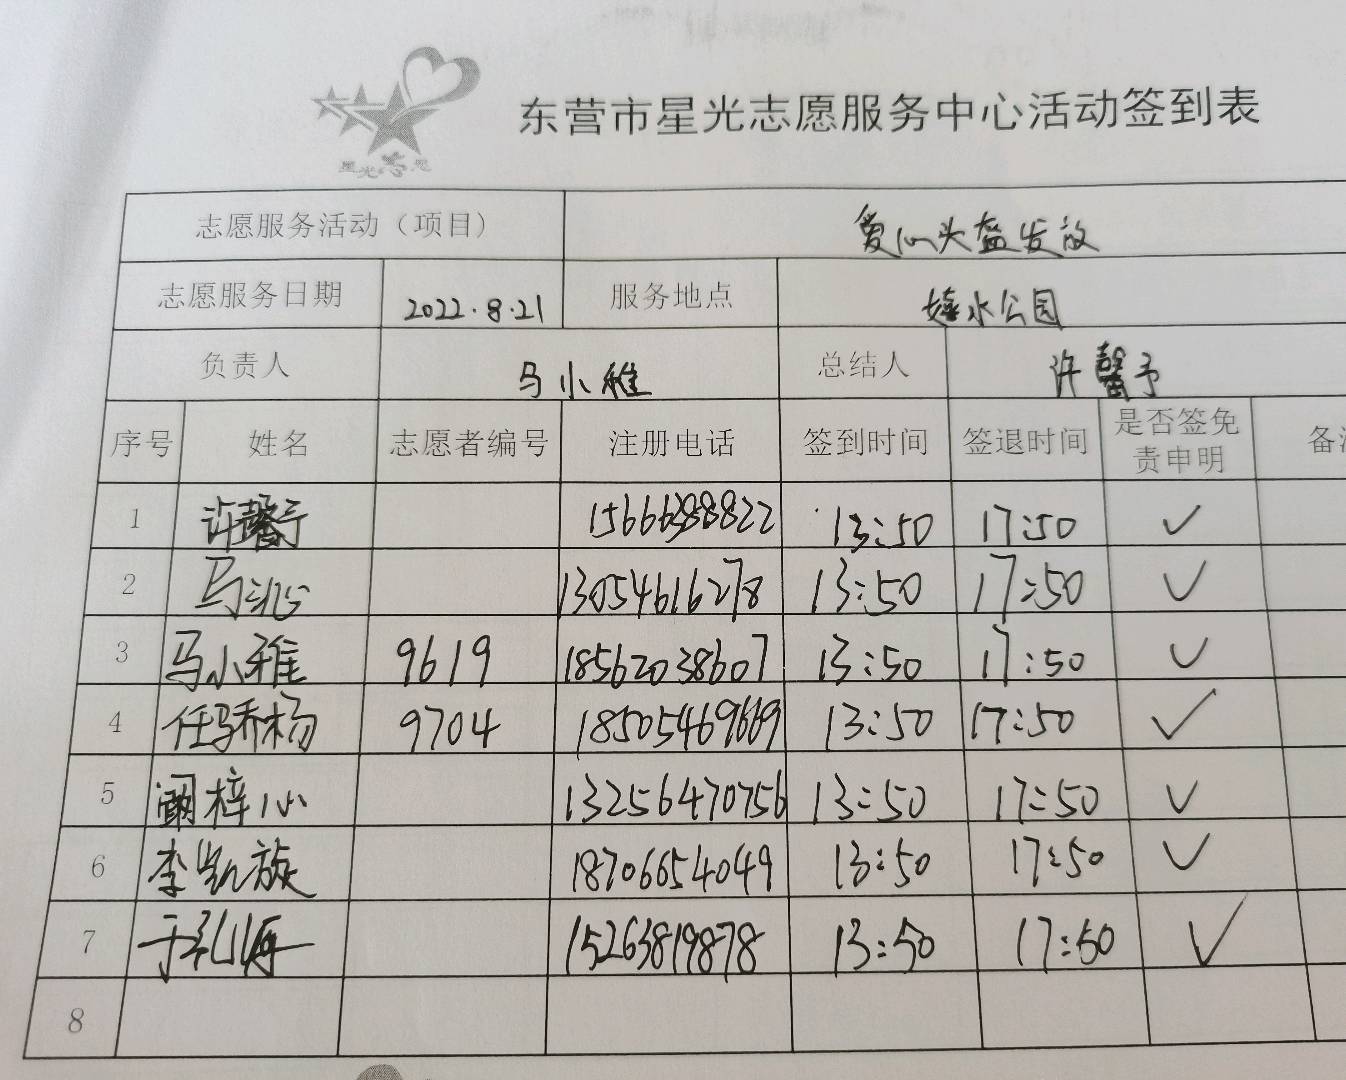 星光志愿
东营市星光志愿服务中心活动签到表
志愿服务活动（项目） 爱心头盔发放
志愿服务日期 2022.8.21 服务地点 嬉水公园
负责人 马小雅 总结人 许馨予
序号 姓名 志愿者编号 注册电话 签到时间 签退时间 是否签免责申明 备
1 许馨予 15666388822 13:50 17:50 ✓
2 马沁 13054616278 13:50 17:50 ✓
3 马小雅 9619 18562038607 13:50 17:50 ✓
4 任骄杨 9704 18505469669 13:50 17:50 ✓
5 阚梓心 13256470756 13:50 17:50 ✓
6 李凯旋 18706654049 13:50 17:50 ✓
7 于 15263819878 13:50 17:50 ✓
8